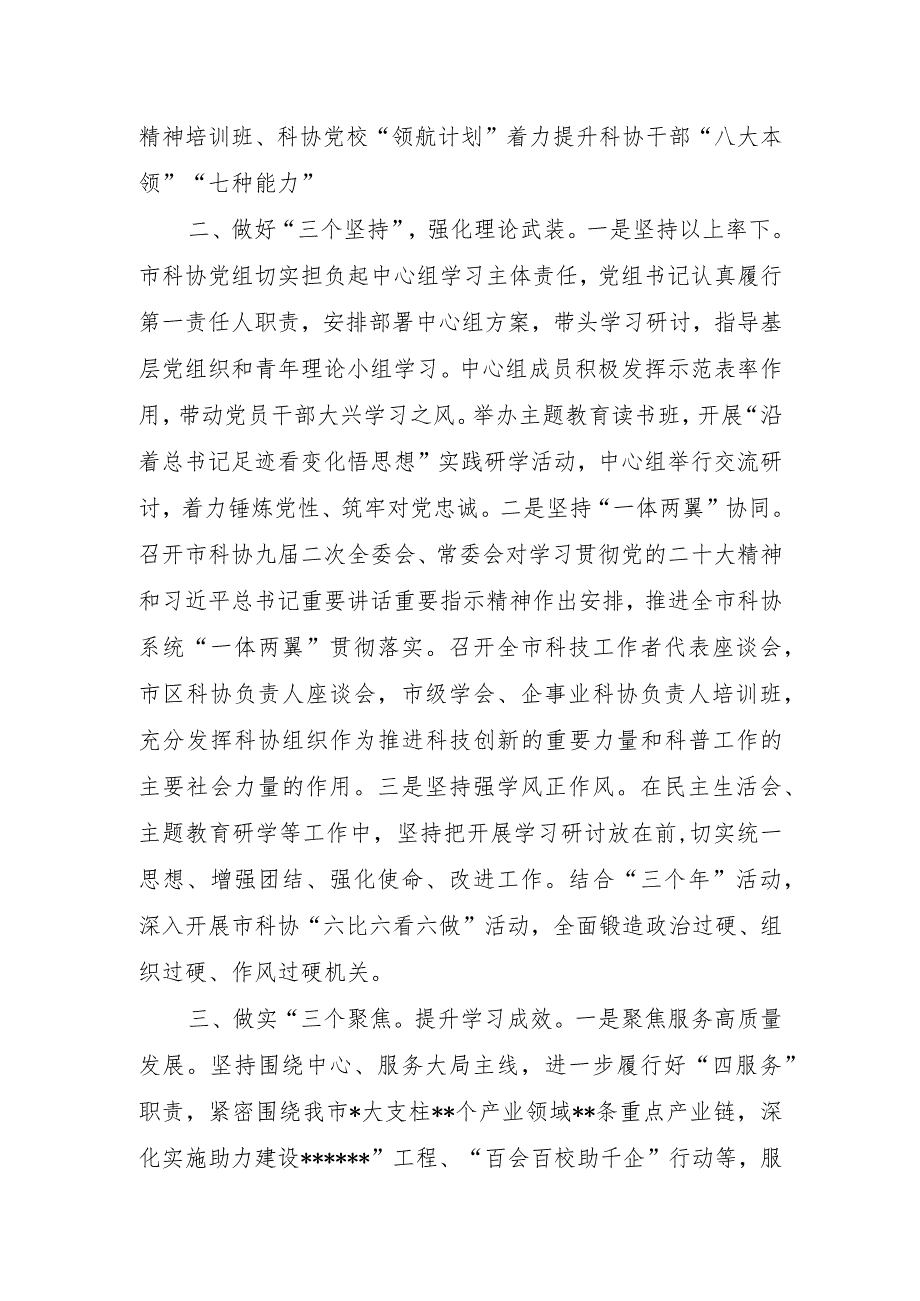 精神培训班、科协党校“领航计划”着力提升科协干部“八大本
领”“七种能力”
二、做好“三个坚持”，强化理论武装。一是坚持以上率下。
市科协党组切实担负起中心组学习主体责任，党组书记认真履行
第一责任人职责，安排部署中心组方案，带头学习研讨，指导基
层党组织和青年理论小组学习。中心组成员积极发挥示范表率作
用，带动党员干部大兴学习之风。举办主题教育读书班，开展“沿
着总书记足迹看变化悟思想”实践研学活动，中心组举行交流研
讨，着力锤炼党性、筑牢对党忠诚。二是坚持“一体两翼”协同。
召开市科协九届二次全委会、常委会对学习贯彻党的二十大精神
和习近平总书记重要讲话重要指示精神作出安排，推进全市科协
系统“一体两翼”贯彻落实。召开全市科技工作者代表座谈会，
市区科协负责人座谈会，市级学会、企事业科协负责人培训班，
充分发挥科协组织作为推进科技创新的重要力量和科普工作的
主要社会力量的作用。三是坚持强学风正作风。在民主生活会、
主题教育研学等工作中，坚持把开展学习研讨放在前,切实统一
思想、增强团结、强化使命、改进工作。结合“三个年”活动，
深入开展市科协“六比六看六做”活动，全面锻造政治过硬、组
织过硬、作风过硬机关。
三、做实“三个聚焦。提升学习成效。一是聚焦服务高质量
发展。坚持围绕中心、服务大局主线，进一步履行好“四服务”
职责，紧密围绕我市*大支柱**个产业领域**条重点产业链，深
化实施助力建设******”工程、“百会百校助千企”行动等，服